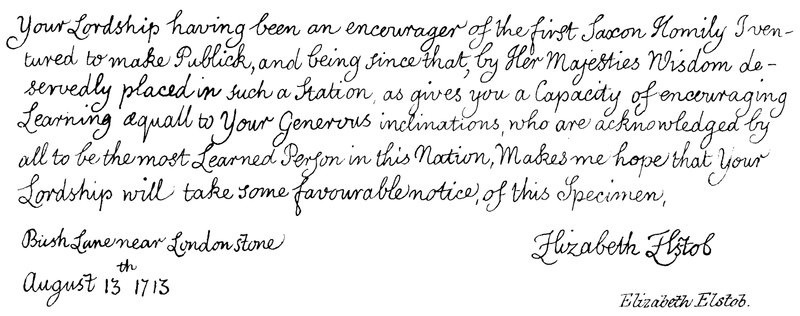 Your Lordship having been an encourager of the first Saxon Homily I ven-
tured to make Publick, and being since that, by Her Majesties Wisdom de-
servedly placed in such a Station, as gives you a Capacity of encouraging
Learning æquall to Your Generous inclinations, who are acknowledged by
all to be the most Learned Person in this Nation, Makes me hope that Your
Lordship will take some favourable notice, of this Specimen,
Bush Lane near London stone
Elizabeth Elstob
August 13th 1713
Elizabeth Elstob.